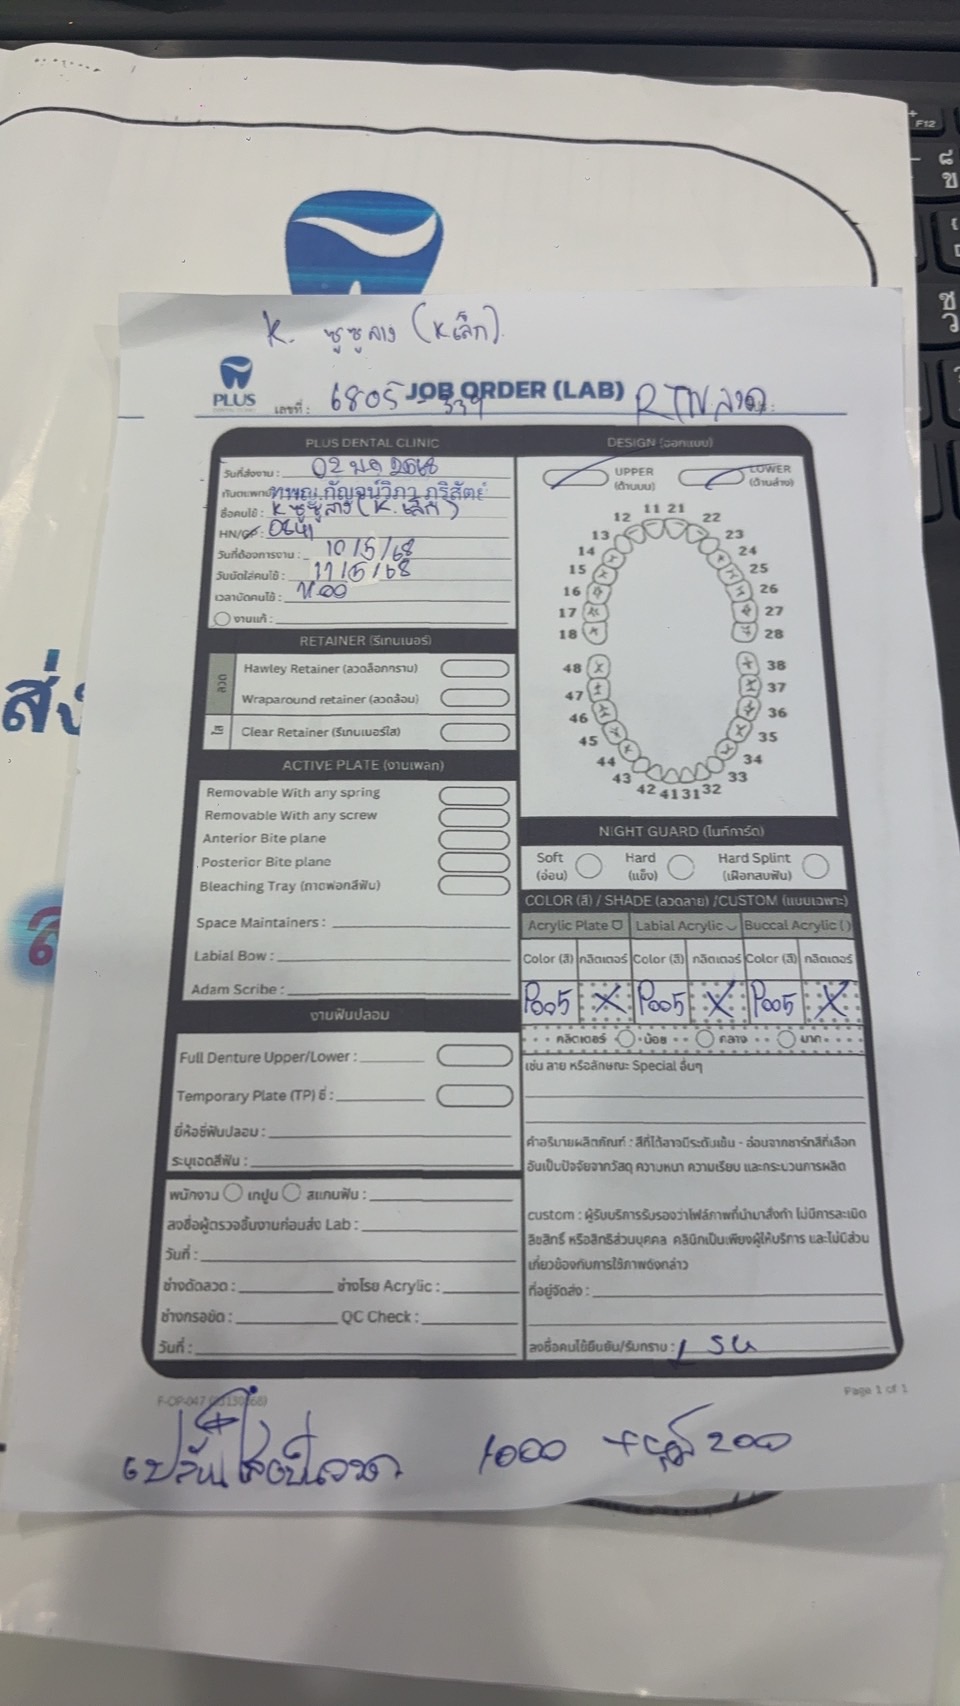 K. ซูซูลาง (Kเล็ก).
PLUS
JOB ORDER (LAB)
เลขที่ : 6805 - 339
RTN ลวด
PLUS DENTAL CLINIC
วันที่ส่งงาน :
ทันตแพทย์ ทพญ.กัญจน์วิภา ภูริสัตย์
ชื่อคนไข้ : K ซูซูลาง (K. เล็ก)
HN/ : 0841
วันที่ต้องการงาน : 10/5/68
วันนัดใส่คนไข้ : 11/5/68
เวลานัดคนไข้ : 11.00
งานแก้ :
RETAINER (รีเทนเนอร์)
ลวด
Hawley Retainer (ลวดล็อกกราม)
Wraparound retainer (ลวดล้อม)
ใส
Clear Retainer (รีเทนเนอร์ใส)
ACTIVE PLATE (งานเพลท)
Removable With any spring
Removable With any screw
Anterior Bite plane
Posterior Bite plane
Bleaching Tray (ถาดฟอกสีฟัน)
Space Maintainers :
Labial Bow :
Adam Scribe :
งานฟันปลอม
Full Denture Upper/Lower :
Temporary Plate (TP) ซี่ :
ยี่ห้อซี่ฟันปลอม :
ระบุเฉดสีฟัน :
พนักงาน เทปูน สแกนฟัน :
ลงชื่อผู้ตรวจชิ้นงานก่อนส่ง Lab :
วันที่ :
ช่างดัดลวด : ช่างโรย Acrylic :
ช่างกรอขัด : QC Check :
วันที่ :
DESIGN (ออกแบบ)
UPPER (ด้านบน)
LOWER (ด้านล่าง)
11 21
12 22
13 23
14 24
15 25
16 26
17 27
18 28
48 38
47 37
46 36
45 35
44 34
43 33
42 41 31 32
NIGHT GUARD (ไนท์การ์ด)
Soft (อ่อน)
Hard (แข็ง)
Hard Splint (เฝือกสบฟัน)
COLOR (สี) / SHADE (ลวดลาย) /CUSTOM (แบบเฉพาะ)
Acrylic Plate Labial Acrylic Buccal Acrylic ( )
Color (สี) กลิตเตอร์ Color (สี) กลิตเตอร์ Color (สี) กลิตเตอร์
P005 X P005 X P005 X
กลิตเตอร์ น้อย กลาง มาก
เช่น ลาย หรือลักษณะ Special อื่นๆ
คำอธิบายผลิตภัณฑ์ : สีที่ได้อาจมีระดับเข้ม - อ่อนจากชาร์ทสีที่เลือก
อันเป็นปัจจัยจากวัสดุ ความหนา ความเรียบ และกระบวนการผลิต
custom : ผู้รับบริการรับรองว่าไฟล์ภาพที่นำมาสั่งทำ ไม่มีการละเมิด
ลิขสิทธิ์ หรือสิทธิส่วนบุคคล คลินิกเป็นเพียงผู้ให้บริการ และไม่มีส่วน
เกี่ยวข้องกับการใช้ภาพดังกล่าว
ที่อยู่จัดส่ง :
ลงชื่อคนไข้ยืนยัน/รับทราบ :
Page 1 of 1
1000 200
F12